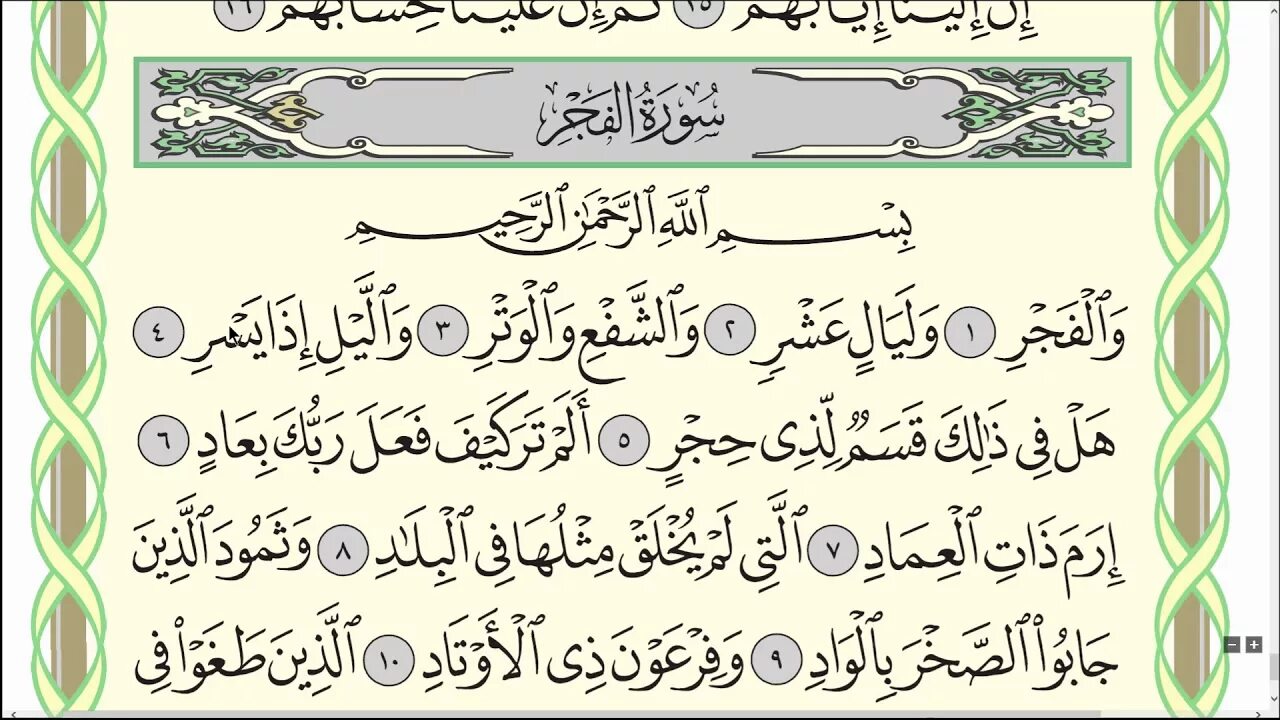 إِنَّ إِلَيْنَا إِيَابَهُمْ ٢٥ ثُمَّ إِنَّ عَلَيْنَا حِسَابَهُم ٢٦
سُورَةُ الفَجْرِ
بِسْمِ ٱللَّهِ ٱلرَّحْمَٰنِ ٱلرَّحِيمِ
وَٱلْفَجْرِ ١ وَلَيَالٍ عَشْرٍ ٢ وَٱلشَّفْعِ وَٱلْوَتْرِ ٣ وَٱلَّيْلِ إِذَا يَسْرِ ٤
هَلْ فِى ذَٰلِكَ قَسَمٌ لِّذِى حِجْرٍ ٥ أَلَمْ تَرَ كَيْفَ فَعَلَ رَبُّكَ بِعَادٍ ٦
إِرَمَ ذَاتِ ٱلْعِمَادِ ٧ ٱلَّتِى لَمْ يُخْلَقْ مِثْلُهَا فِى ٱلْبِلَٰدِ ٨ وَثَمُودَ ٱلَّذِينَ
جَابُوا۟ ٱلصَّخْرَ بِٱلْوَادِ ٩ وَفِرْعَوْنَ ذِى ٱلْأَوْتَادِ ١٠ ٱلَّذِينَ طَغَوْا۟ فِى